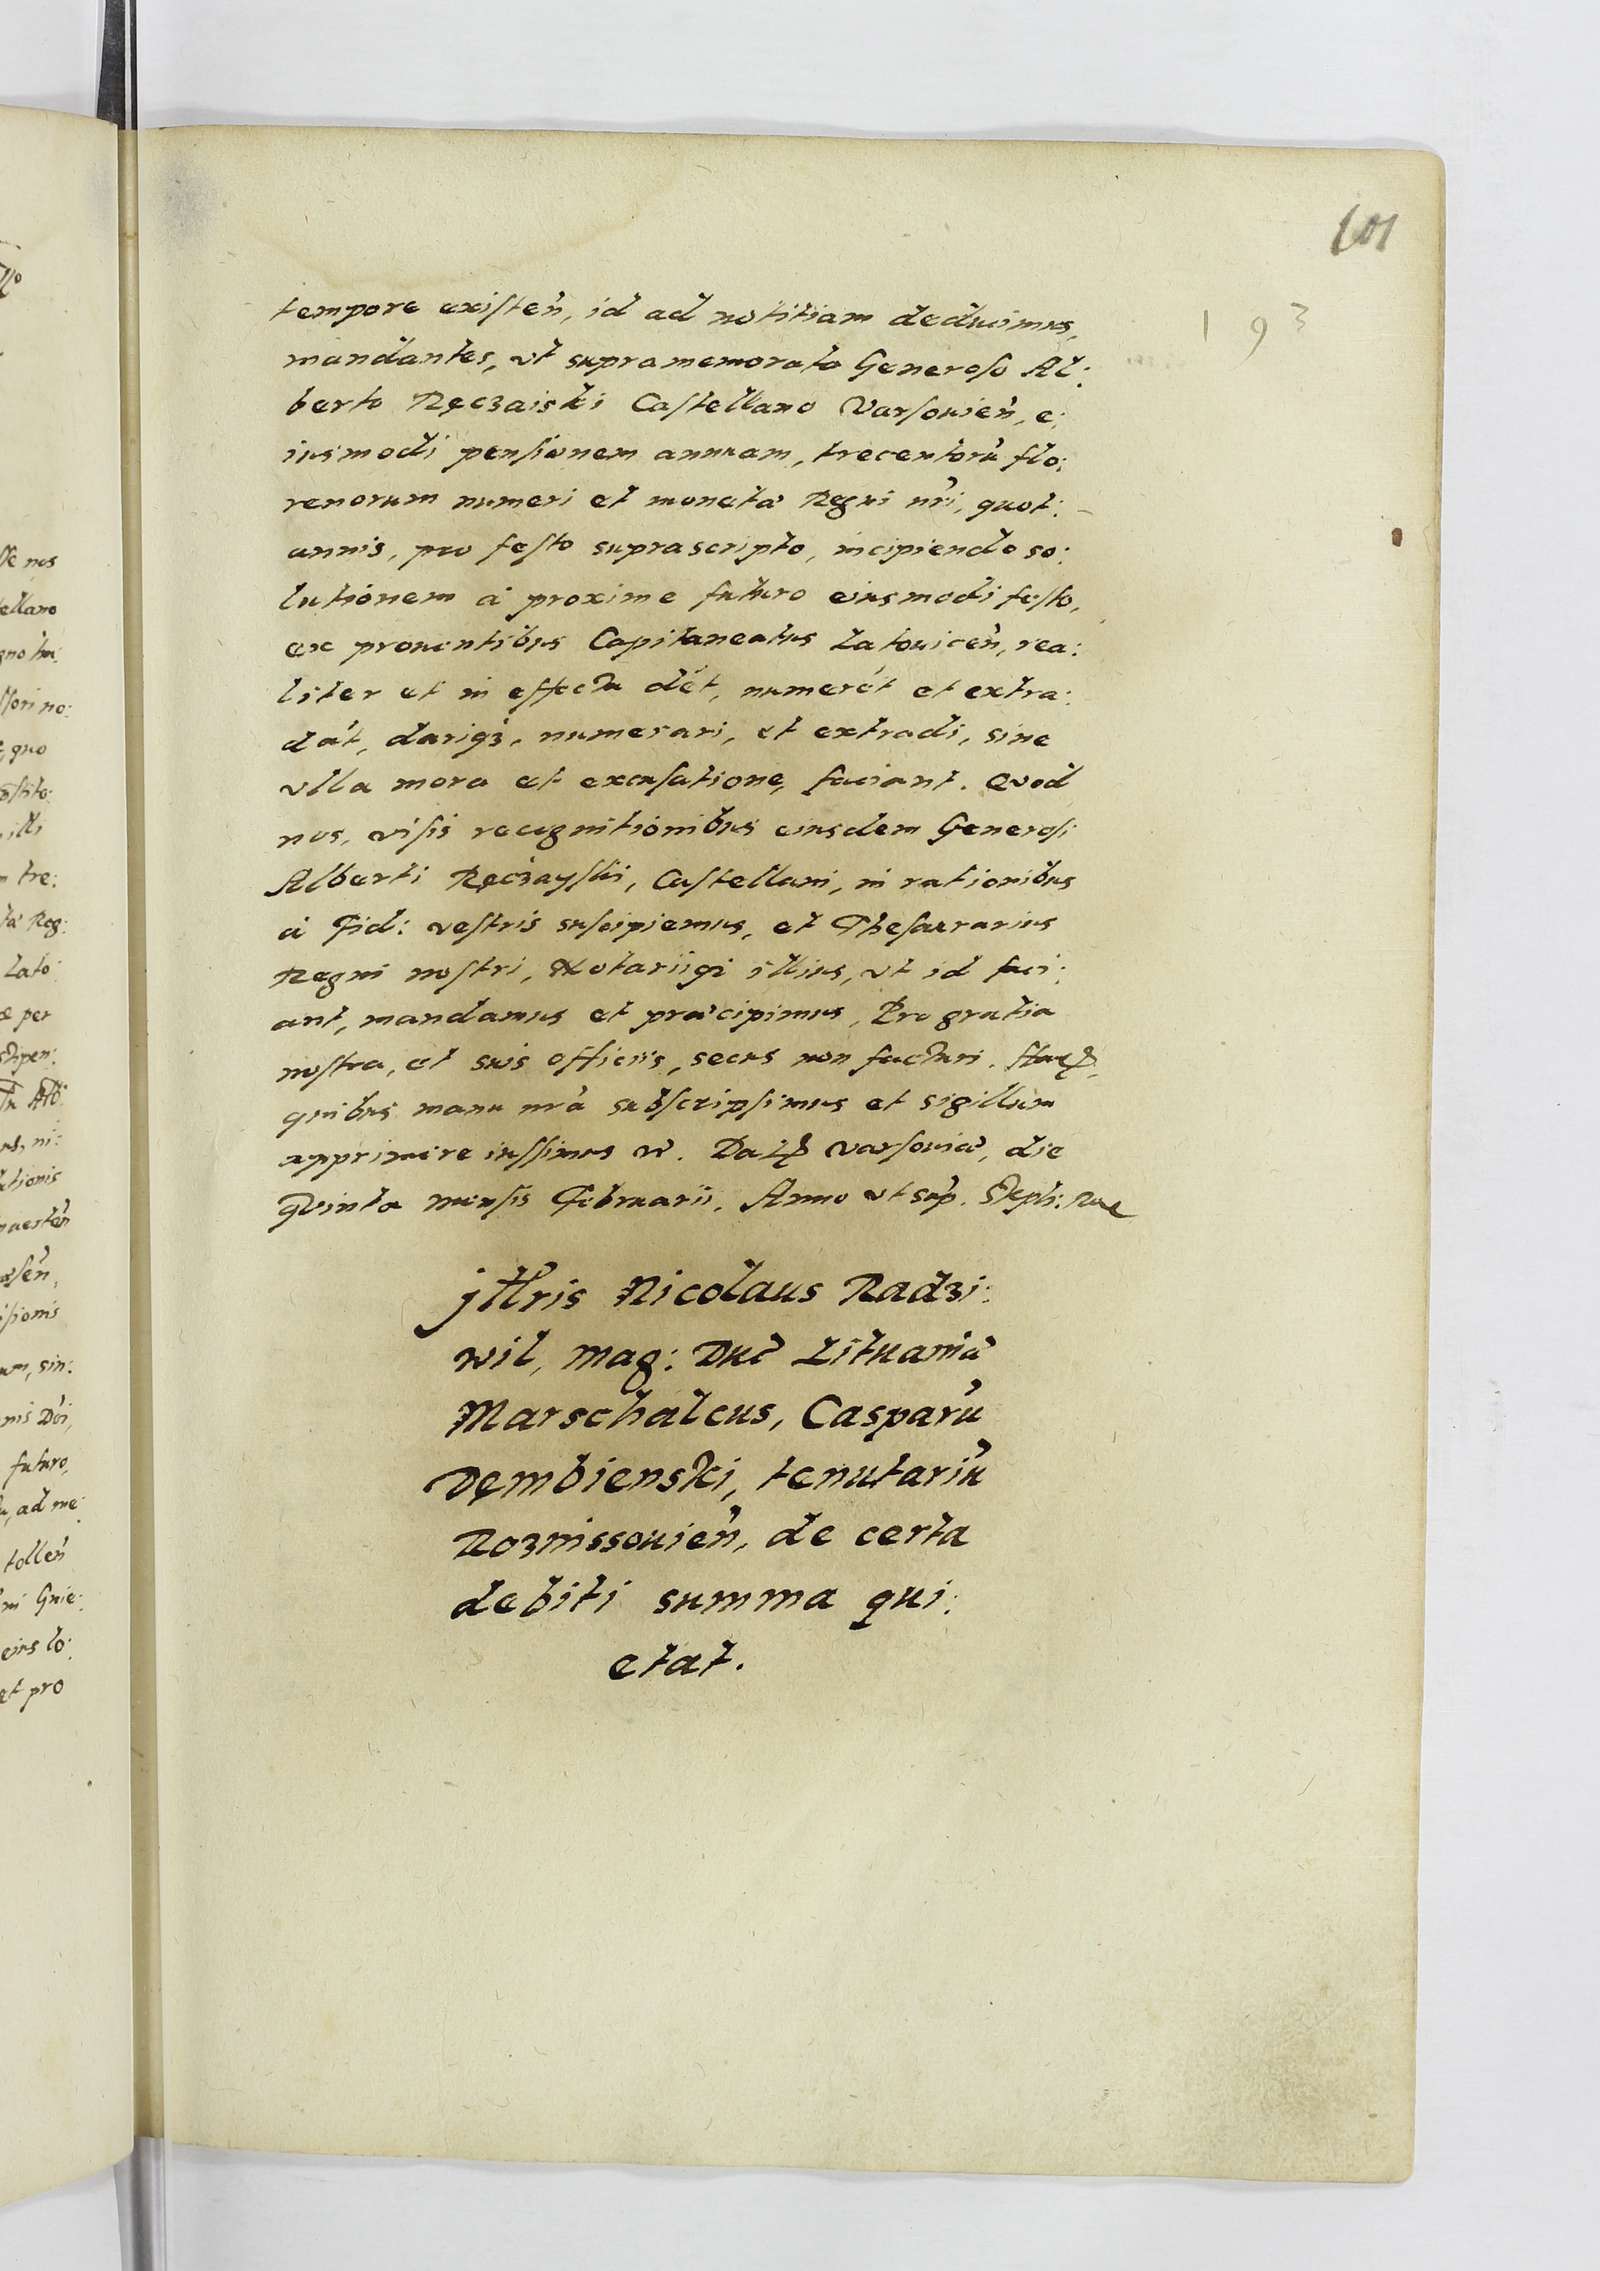 101
193
tempore existeñ, id ad notitiam deducimus,
mandantes, ut supramemorato Generoso Al:
berto Ręczaiski Castellano Varsovieñ, e:
iusmodi pensionem annuam, trecentorũ flo:
renorum numeri et monetæ Regni nr̃i, quot:
annis, pro festo suprascripto, incipiendo so:
lutionem à proxime futuro eiusmodi festo,
ex proventibus Capitaneatus Latoviceñ, rea:
liter et in effectu dẽt, numerẽt et extra:
dãt, dariq3, numerari, et extradi, sine
vlla mora et excusatione, faciant. Quod
nos, visis recognitionibus eiusdem Generosi
Alberti Ręczayski, Castellani, in rationibus
à Fid: vestris suscipiemus, et Thesaurarius
Regni nostri, Notariiq3 illius, vt id faci:
ant, mandamus et præcipimus, Pro gratia
nostra, et suis officiis, secus non facturi. Harꝝ
quibus manu nr̃a subscripsimus et sigillum
apprimere iussimus n̄. Datꝝ Varsoviæ, die
Quinta mensis Februarii, Anno vt sup̃. Steph: Rex
jllr̃is Nicolaus Radzi:
wil, mag: Duc̃ Lituaniæ
Marschalcus, Casparũ
Dęmbienski, tenutariũ
Roznissovieñ, de certa
debiti summa qui:
etat.
tellano
quo
illi
tre:
Reg:
Lato:
per
ationis
sionis
sin:
futuro,
ad me:
tolleñ
Gnie:
eius lo:
et pro